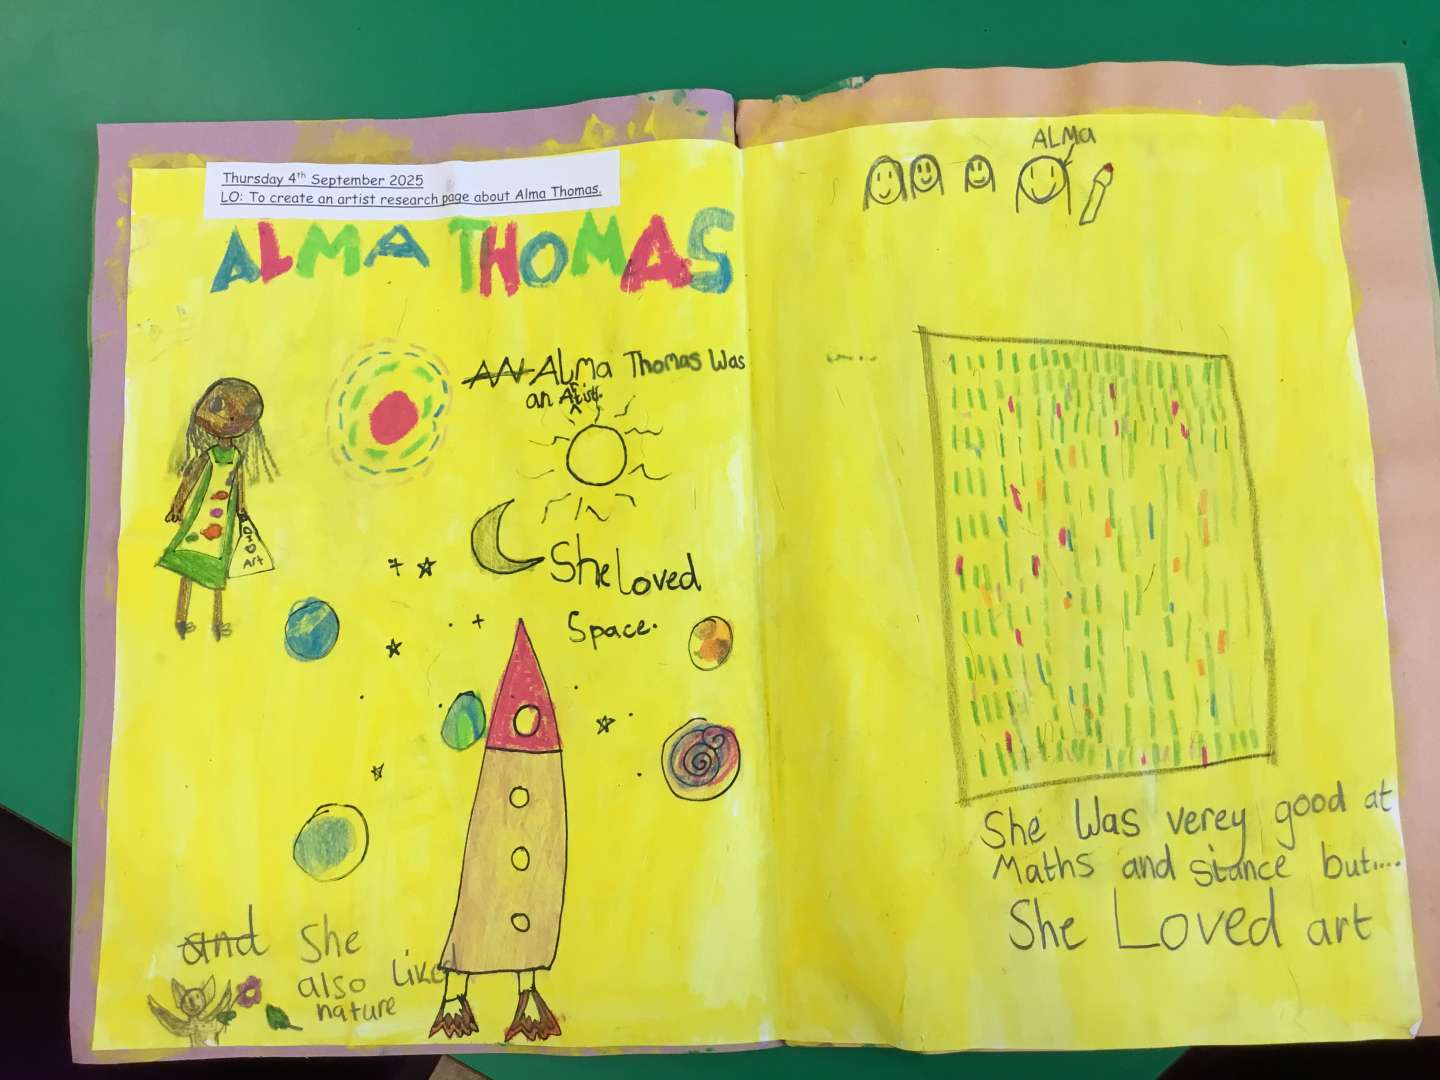 Thursday 4th September 2025
LO: To create an artist research page about Alma Thomas.
ALMA THOMAS
AN Alma Thomas Was
an Artist.
She Loved
Space.
Art
and She
also Liked
nature
ALMA
She Was verey good at
Maths and siance but....
She Loved art